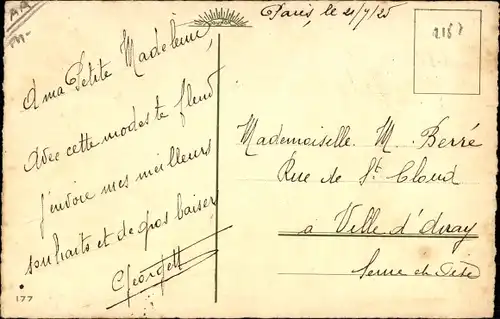 Paris, le 21/7/25
A ma Petite Madeleine,
Avec cette modeste fleur
j'envoie mes meilleurs
souhaits et de gros baiser
Georgett
Mademoiselle. M. Berré
Rue de St Cloud
à Ville d'Avray
Seine et Oise
177